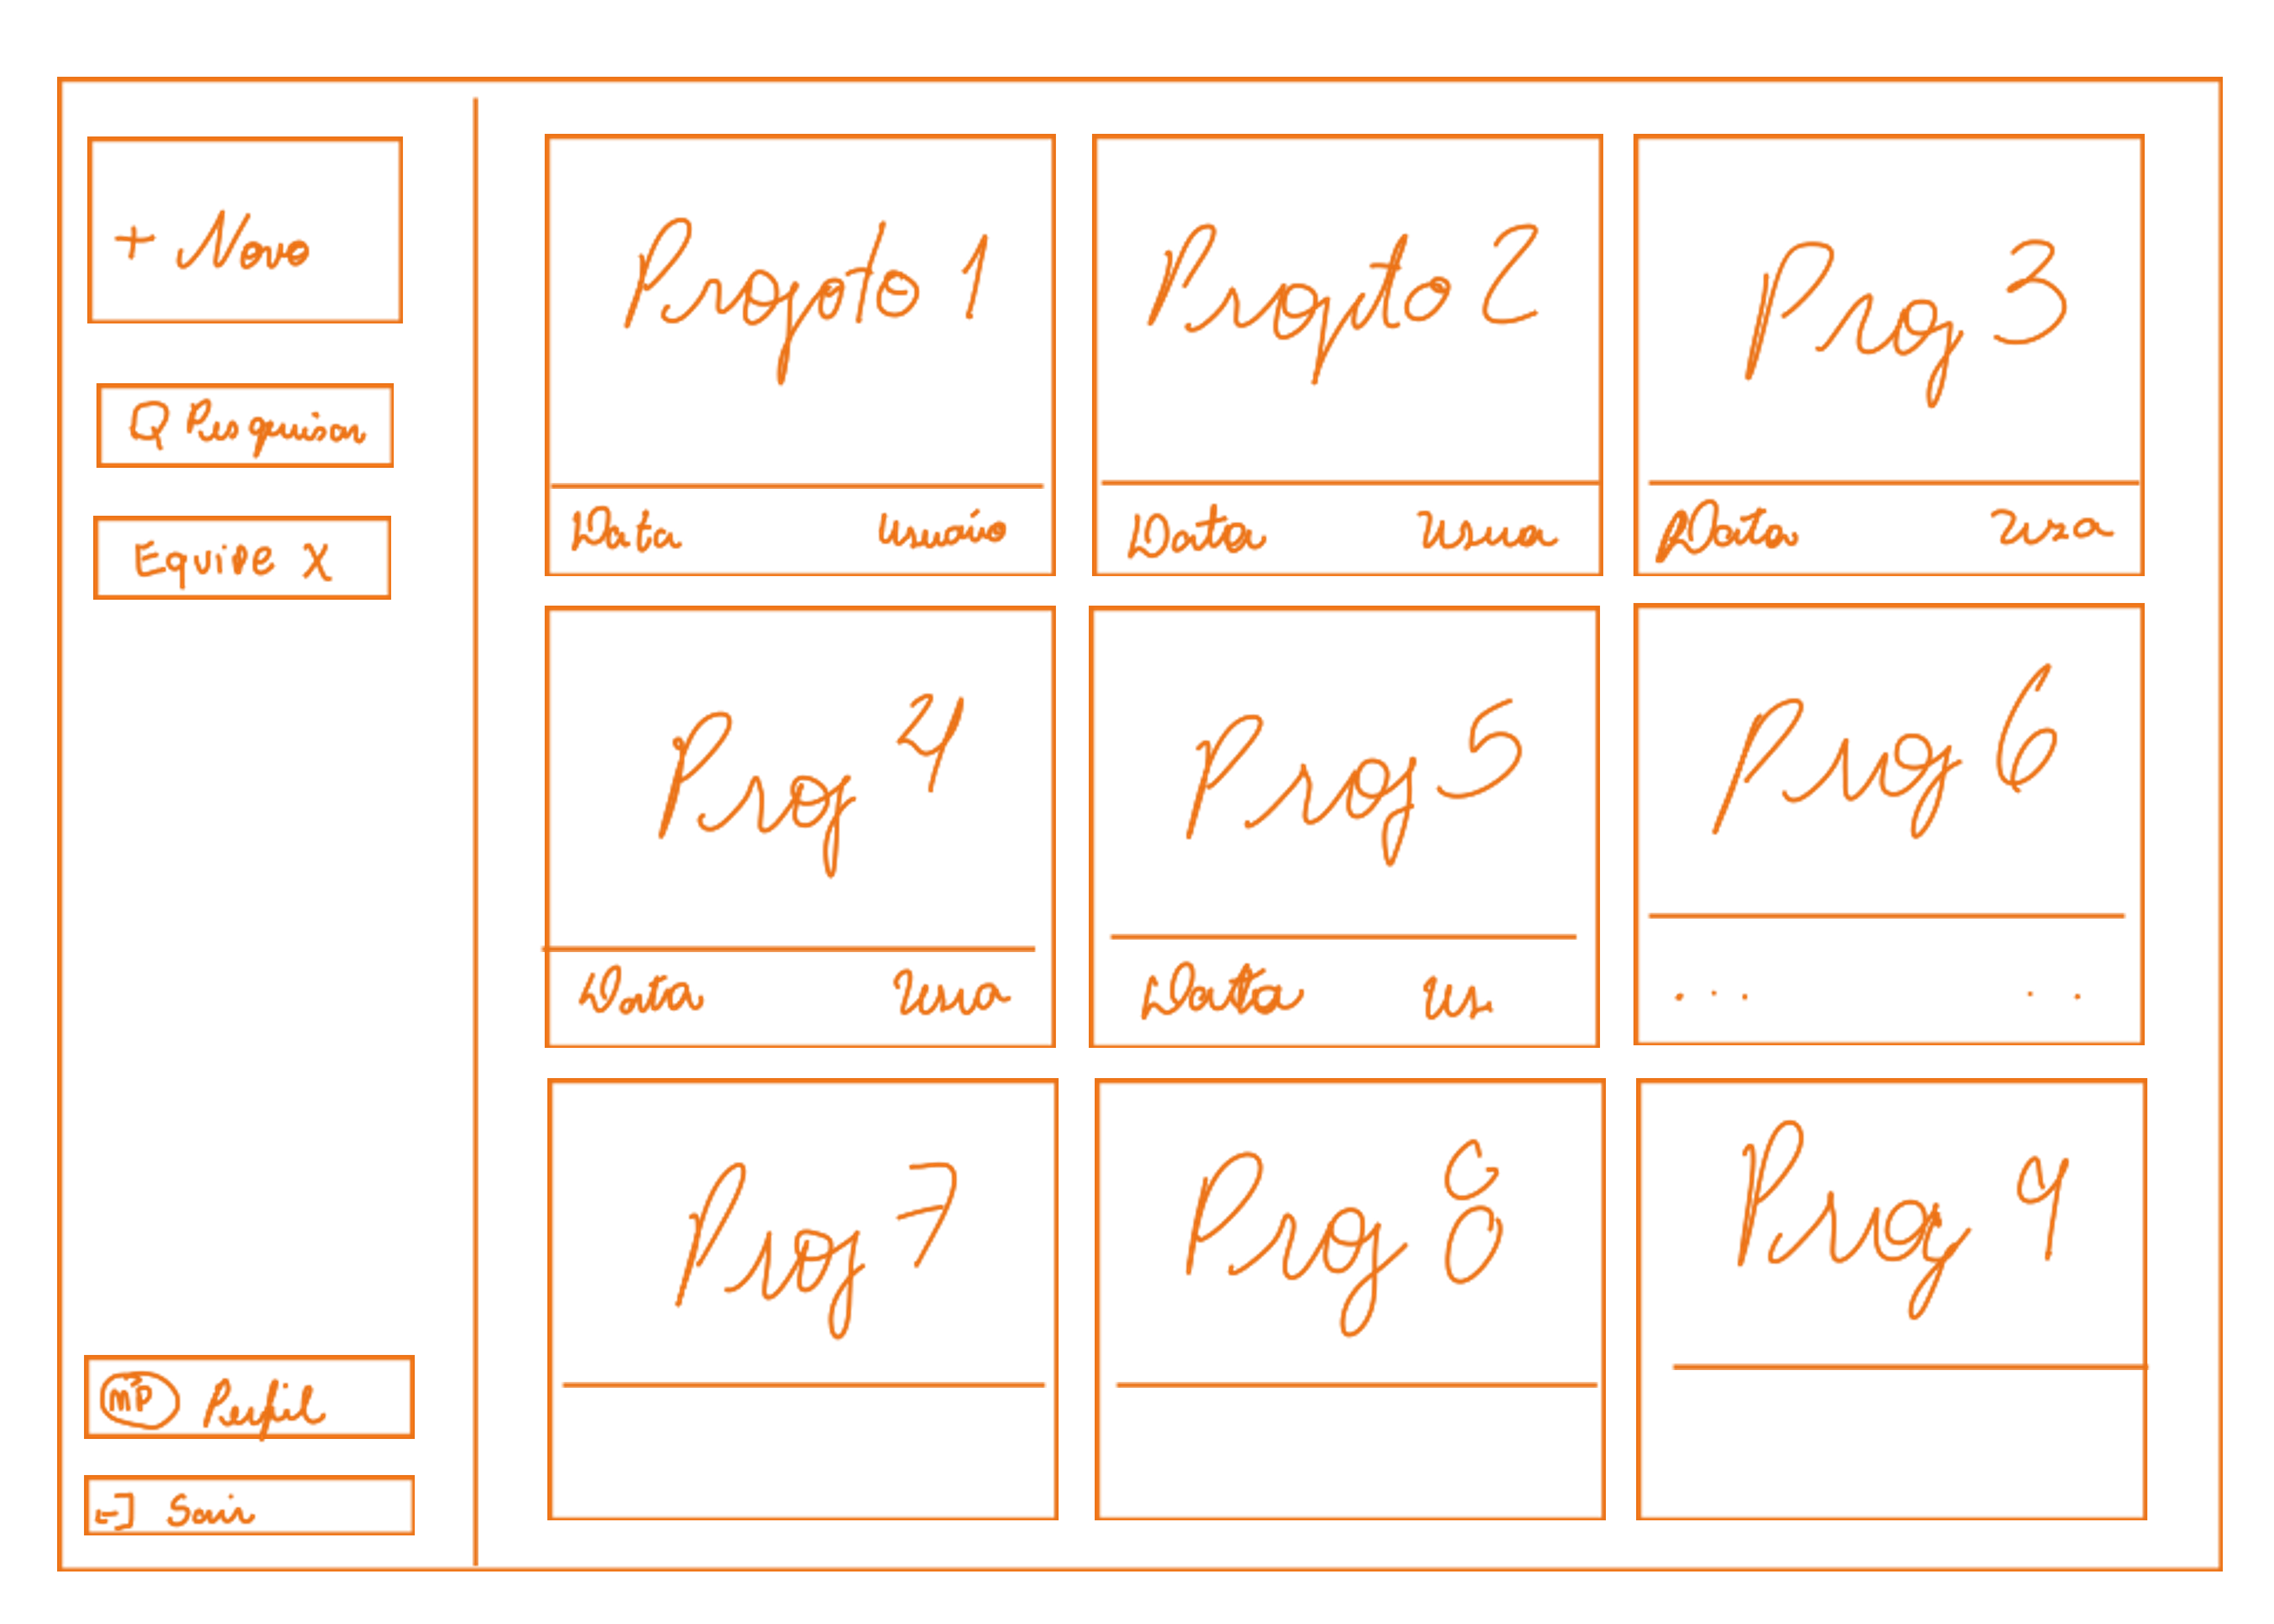 + Novo
Pesquisar
Equipe X
MP Perfil
Sair
Projeto 1
Data Usuário
Projeto 2
Data Usua
Proj 3
Data Usa
Proj 4
Data Usua
Proj 5
Data Us
Proj 6
... ..
Proj 7
Proj 8
Proj 9